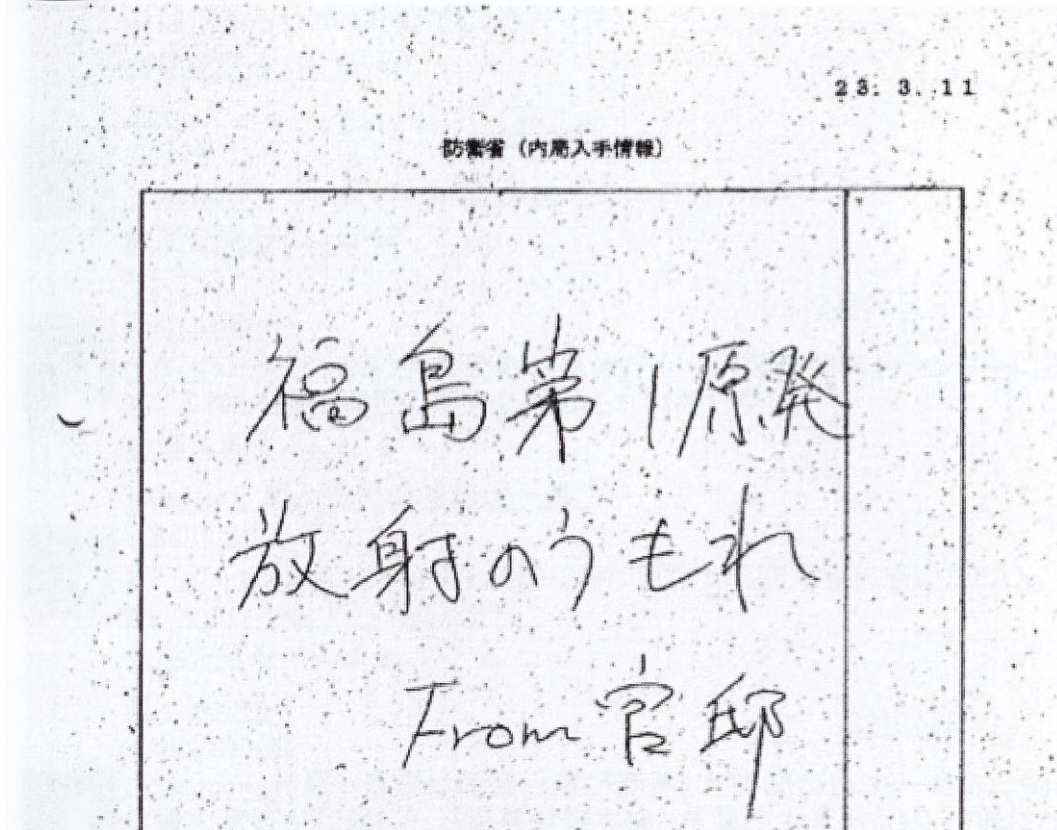 23.3.11
防衛省（内局入手情報）
福島第1原発
放射のうもれ
From官邸